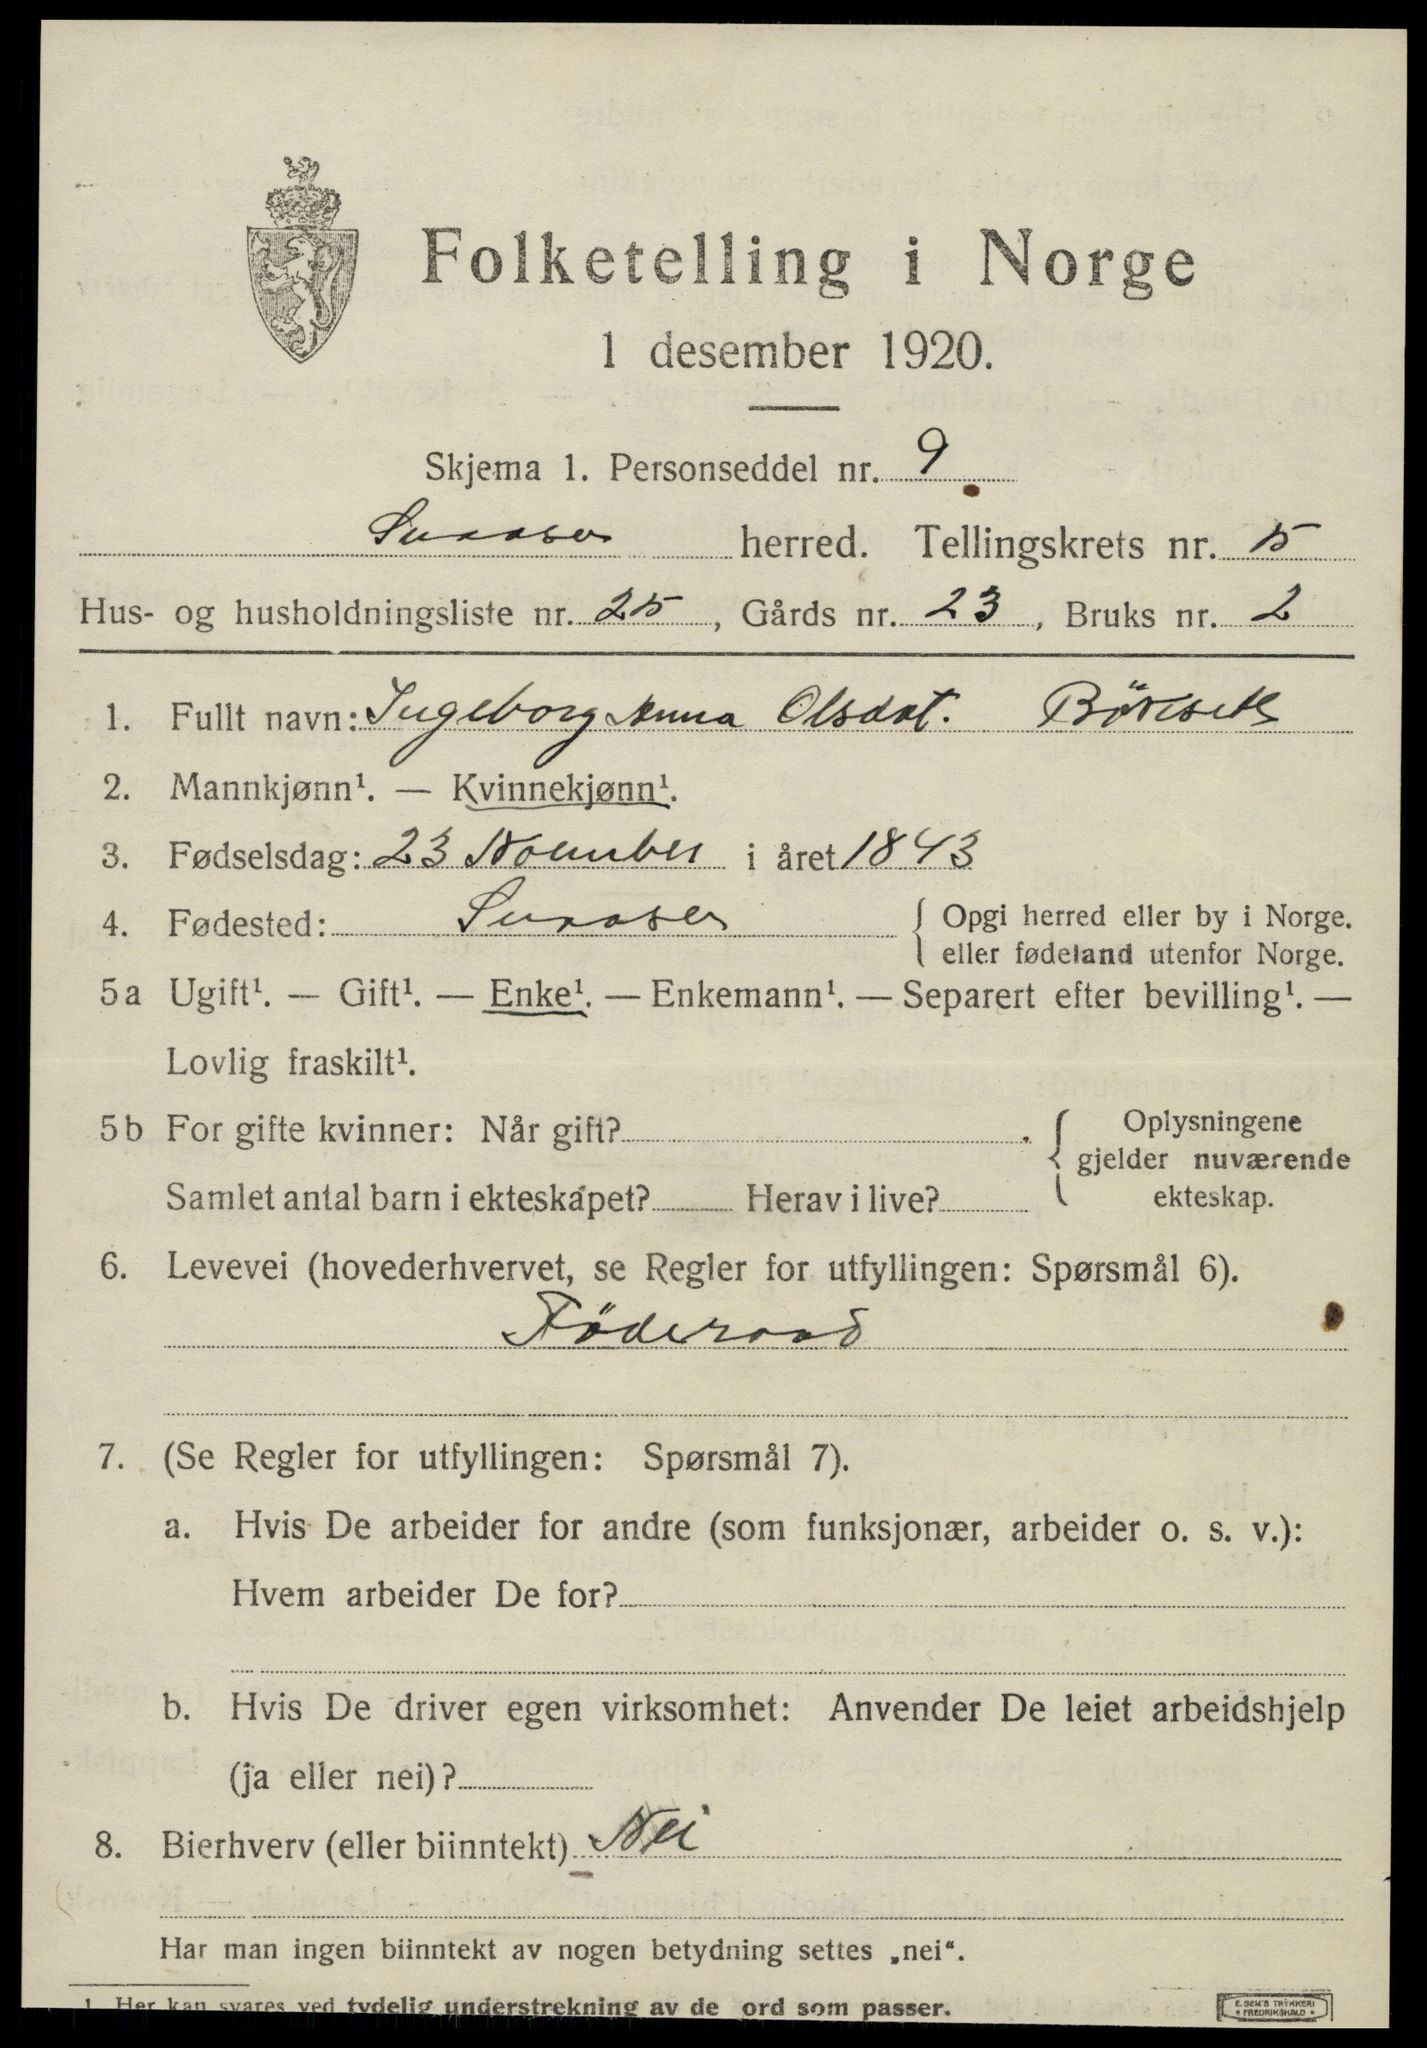 Folketelling i Norge
1 desember 1920.
Skjema 1. Personseddel nr. 9
Snaasen herred. Tellingskrets nr. 5
Hus- og husholdningsliste nr. 25, Gårds nr. 23, Bruks nr. 2
1. Fullt navn: Ingeborg Anna Olsdat.
2. Mannkjønn¹. — Kvinnekjønn¹.
3. Fødselsdag: 23 November i året 1843
4. Fødested: Snaasen { Opgi herred eller by i Norge.
eller fødeland utenfor Norge.
5a Ugift¹. — Gift¹. — Enke¹. — Enkemann¹. — Separert efter bevilling¹. —
Lovlig fraskilt¹.
5b For gifte kvinner: Når gift? . { Oplysningene
gjelder nuværende
Samlet antal barn i ekteskapet? Herav i live? ekteskap.
6. Levevei (hovederhvervet, se Regler for utfyllingen: Spørsmål 6).
Föderaad
7. (Se Regler for utfyllingen: Spørsmål 7).
a. Hvis De arbeider for andre (som funksjonær, arbeider o. s. v.):
Hvem arbeider De for?
b. Hvis De driver egen virksomhet: Anvender De leiet arbeidshjelp
(ja eller nei)?
8. Bierhverv (eller biinntekt) Nei
Har man ingen biinntekt av nogen betydning settes „nei“.
1 Her kan svares ved tydelig understrekning av de ord som passer.
E. SEM'S TRYKKERI
FREDRIKSHALD